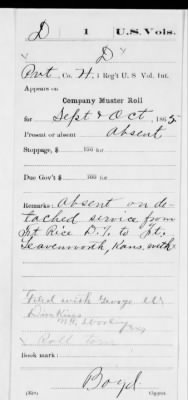 D 1 U.S. Vols.
D
Pvt, Co. H, 1 Reg't U. S. Vol. Inf.
Appears on
Company Muster Roll
for Sept & Oct, 1865
Present or absent Absent
Stoppage, $ 100 for
Due Gov't $ 100 for
Remarks: Absent on de-
tached service from
Ft Rice D.T. to Ft.
Leavenworth, Kans, with
Filed with George W.
Roll Torn
Book mark:
Boyd
Copyist.